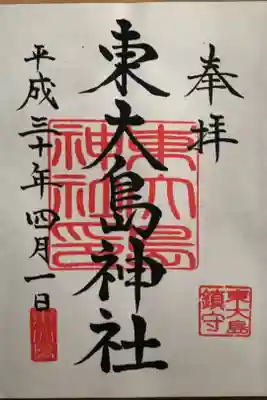 奉拝
東大島神社
東大島
神社印
東大島
鎮守
平成三十年四月一日